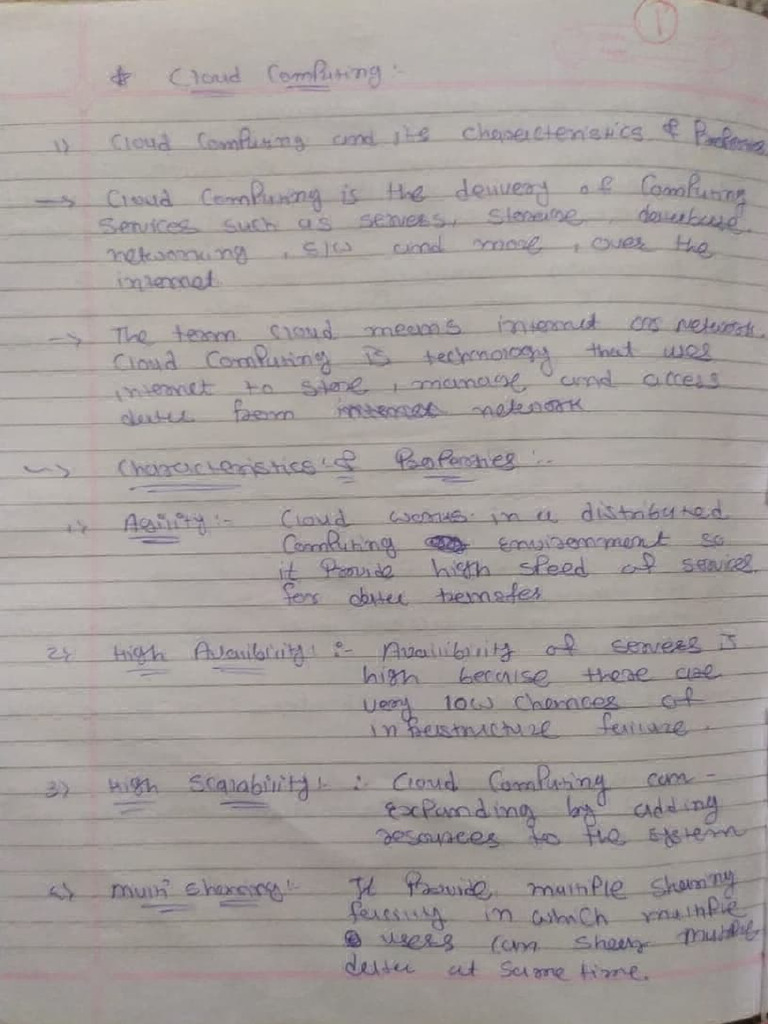 1
* Cloud Computing :-
1) Cloud Computing and its characteristics & Properties
→ Cloud Computing is the delivery of Computing
services such as servers, storage, database,
networking, S/W and more, over the
internet
→ The term cloud means internet or network.
Cloud Computing is technology that uses
internet to store, manage and access
data from network
→ Characteristics & Properties :-
1) Agility :- Cloud works in a distributed
Computing environment so
it Provide high speed of services
for data transfer
2) High Availibility :- Availibility of servers is
high because there are
very low chances of
infrastructure failure.
3) High Scalability :- Cloud Computing can -
expanding by adding
resources to the system
4) Multi sharing :- It Provide multiple sharing
in which multiple
users can multiple
data at same time.